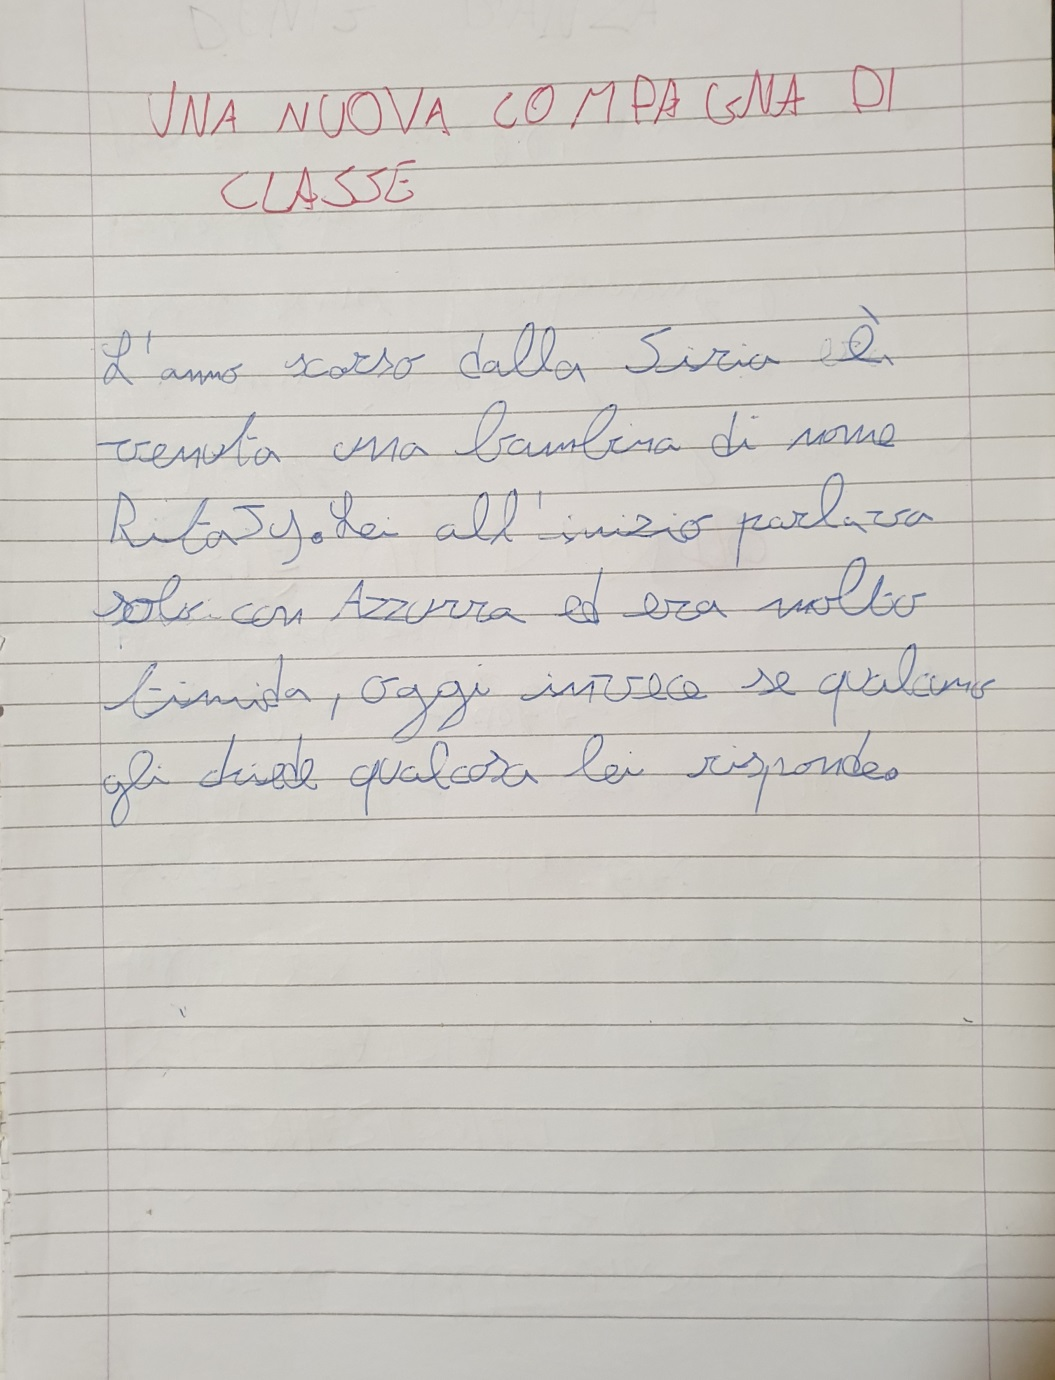 UNA NUOVA COMPAGNA DI
CLASSE
L'anno scorso dalla Siria è
venuta una bambina di nome
RitaJy. Lei all'inizio parlava
solo con Azzurra ed era molto
timida, oggi invece se qualcuno
gli chiede qualcosa lei risponde.